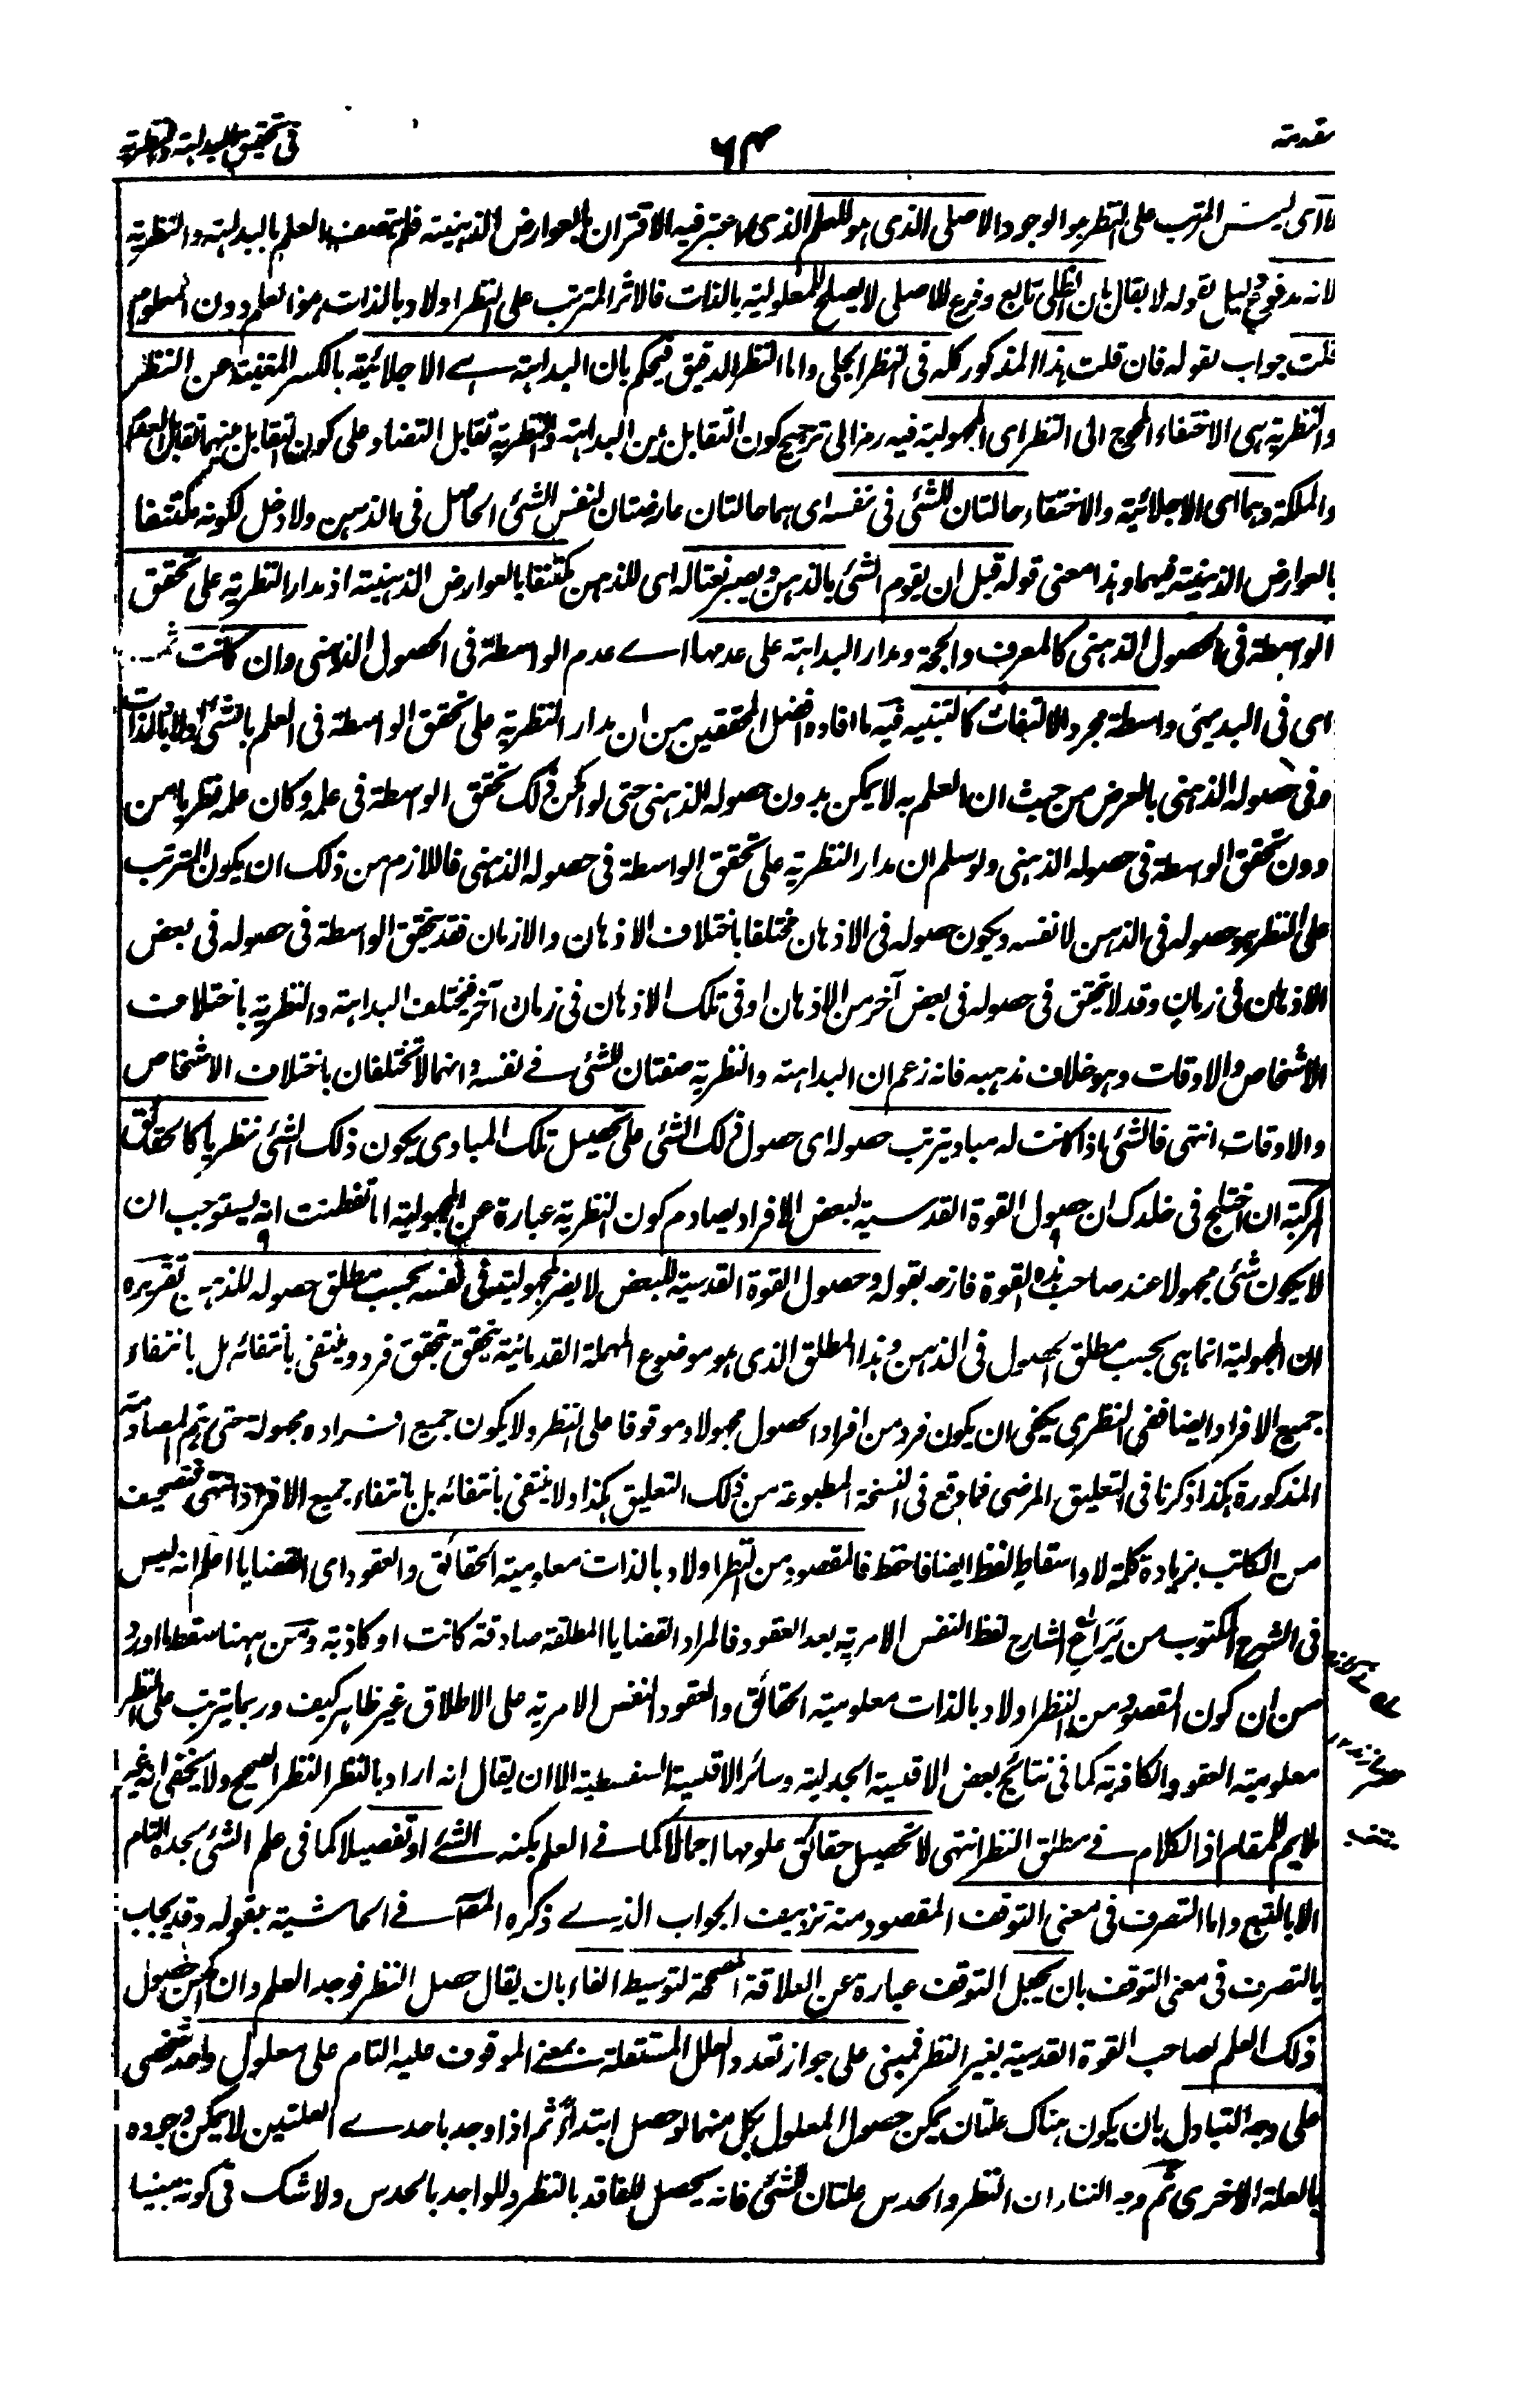 مقدمة
٦٤
فى تحقيق البداهة والنظرية
اى ليس المترتب على النظر هو الوجود الاصلى الذى هو العلم الذى اعتبر فيه الاقتران بالعوارض الذهنية فلم يتصف العلم بالبداهة والنظرية
لانه مدفوع بقوله لا يقال بان الظلى تابع وفرع للاصلى لا يصلح للمعلولية بالذات فالاثر المترتب على النظر اولا وبالذات هو العلم دون المعلوم
قلت جواب لقوله فان قلت هذا المذكور كله فى النظر الجلى واما النظر الدقيق فيحكم بان البداهة هى الاجلائية بالكسر المغنية عن النظر
والنظرية هى الاختفاء المحوج الى النظر اى المجهولية فيه رمز الى ترجيح كون التقابل بين البداهة والنظرية تقابل التضاد على كون التقابل بينهما تقابل العدم
والملكة وهما اى الاجلائية والاختفاء حالتان للشئ فى نفسه اى هما حالتان عارضتان لنفس الشئ الحاصل فى الذهن ولا دخل لكونه مكتنفا
بالعوارض الذهنية فيهما وهذا معنى قوله قبل ان يقوم الشئ بالذهن ويصير نعتا له اى للذهن مكتنفا بالعوارض الذهنية اذ مدار النظرية على تحقق
الواسطة فى الحصول الذهنى كالمعرف والحجة ومدار البداهة على عدمها اے عدم الواسطة فى الحصول الذهنى وان كانت
اى فى البديهى واسطة مجرد الالتفات كالتنبيه فيه ما افاده افضل المحققين من ان مدار النظرية على تحقق الواسطة فى العلم بالشئ اولا وبالذات
وفى حصوله الذهنى بالعرض من حيث ان العلم به لا يمكن بدون حصوله الذهنى حتى لو امكن ذلك تحقق الواسطة فى علمه وكان علمه نظريا من
دون تحقق الواسطة فى حصوله الذهنى ولو سلم ان مدار النظرية على تحقق الواسطة فى حصوله الذهنى فاللازم من ذلك ان يكون المترتب
على النظر هو حصوله فى الذهن لا نفسه ويكون حصوله فى الاذهان مختلفا باختلاف الاذهان والازمان فقد يتحقق الواسطة فى حصوله فى بعض
الاذهان فى زمان وقد لا يتحقق فى حصوله فى بعض آخر من الاذهان او فى تلك الاذهان فى زمان آخر فيختلف البداهة والنظرية باختلاف
الاشخاص والاوقات وهو خلاف مذهبه فانه زعم ان البداهته والنظرية صفتان للشئ فے نفسه وانهما لا تختلفان باختلاف الاشخاص
والاوقات انتهى فالشئ اذا كانت له مباد يترتب حصوله اى حصول ذلك الشئ على تحصيل تلك المبادى يكون ذلك الشئ نظريا كالحقائق
المركبة ان اختلج فى خلدك ان حصول القوة القدسية لبعض الافراد يصادم كون النظرية عبارة عن المجهولية اما تفطنت انه يستوجب ان
لا يكون شئ مجهولا عند صاحب هذه القوة فازحه بقوله وحصول القوة القدسية للبعض لا يضر مجهوليته فى نفسه بحسب مطلق حصوله للذهن تقريره
ان المجهولية انما هى بحسب مطلق الحصول فى الذهن وهذا المطلق الذى هو موضوع المهملة القدمائية يتحقق بتحقق فرد وينتفى بانتفائه بل بانتفاء
جميع الافراد وايضا ففى النظرى يكفى ان يكون فرد من افراد الحصول مجهولا وموقوفا على النظر ولا يكون جميع افراده مجهولة حتى يتم المصادمة
المذكورة هكذا ذكرنا فى التعليق المرضى فما وقع فى النسخة المطبوعة من ذلك التعليق هكذا ولا ينتفى بانتفائه بل بانتفاء جميع الافراد انتهى فتصحيف
من الكاتب بزيادة كلمة لا واسقاط لفظ ايضا فاحفظ فالمقصود من النظر اولا وبالذات معلومية الحقائق والعقود اى القضايا اعلم انه ليس
فى الشرح المكتوب من يراع الشارح لفظ النفس الامرية بعد العقود فالمراد القضايا المطلقة صادقة كانت او كاذبة ومن ههنا سقط ما اورد
من ان كون المقصود من النظر اولا وبالذات معلومية الحقائق والعقود النفس الامرية على الاطلاق غير ظاهر كيف وربما يترتب على النظر
معلومية العقود الكاذبة كما فى نتائج بعض الاقيسة الجدلية وسائر الاقيسة السفسطية الا ان يقال انه اراد بالنظر النظر الصحيح ولا يخفى انه غير
ملايم للمقام اذ الكلام فے مطلق النظر انتهى لا تحصيل حقائق علومها اجمالا كما فے العلم بكنه الشئ او تفصيلا كما فى علم الشئ بحده التام
الا بالتبع واما التصرف فى معنى التوقف المقصود منه تزييف الجواب الذے ذكره المصنف فے الحاشية بقوله وقد يجاب
بالتصرف فى معنى التوقف بان يجعل التوقف عبارة عن العلاقة المصححة لتوسيط الفاء بان يقال حصل النظر فوجد العلم وان امكن حصول
ذلك العلم لصاحب القوة القدسية بغير النظر فمبنى على جواز تعدد العلل المستقلة بمعنى الموقوف عليه التام على معلول واحد شخصى
على وجه التبادل بان يكون هناك علتان يمكن حصول المعلول بكل منهما لو حصل ابتداء ثم اذا وجد باحدے العلتين لا يمكن وجوده
بالعلة الاخرى ثم وجه البناء ان النظر والحدس علتان للشئ فانه يحصل للفاقد بالنظر وللواجد بالحدس ولا شك فى كونه مبنيا